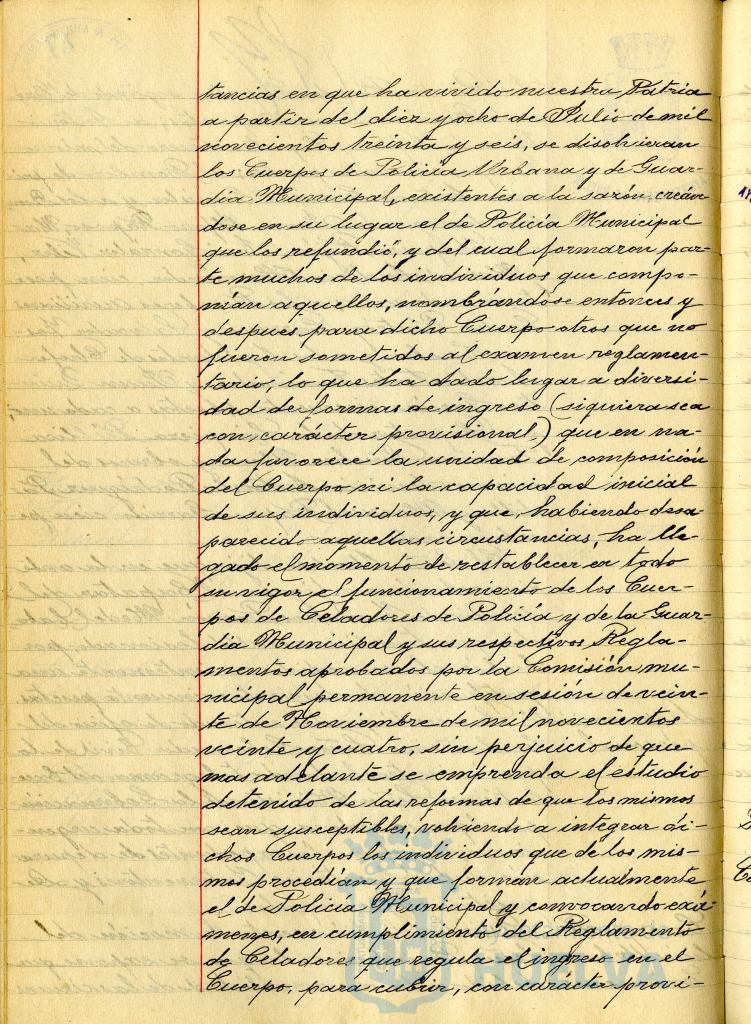 tancias en que ha vivido nuestra Patria
a partir del diez y ocho de Julio de mil
novecientos treinta y seis, se disolvieran
los Cuerpos de Policia Urbana y de Guar-
dia Municipal, existentes a la sazón, creán-
dose en su lugar el de Policía Municipal
que los refundió, y del cual formaron par-
te muchos de los individuos que compo-
nían aquellos, nombrándose entonces y
despues para dicho Cuerpo otros que no
fueron sometidos al examen reglamen-
tario, lo que ha dado lugar a diversi-
dad de formas de ingreso (siquiera sea
con carácter provisional) que en na-
da favorece la unidad de composición
del Cuerpo ni la capacidad inicial
de sus individuos, y que, habiendo desa
parecido aquellas circustancias, ha lle-
gado el momento de restablecer en todo
su vigor el funcionamiento de los Cuer-
pos de Celadores de Policía y de la Guar-
dia Municipal y sus respectivos Regla-
mentos aprobados por la Comisión mu-
nicipal permanente en sesión de vein-
te de Noviembre de mil novecientos
veinte y cuatro, sin perjuicio de que
mas adelante se emprenda el estudio
detenido de las reformas de que los mismos
sean susceptibles, volviendo a integrar di-
chos Cuerpos los individuos que de los mis-
mos procedían y que forman actualmente
el de Policía Municipal y convocando exá-
menes, en cumplimiento del Reglamento
de Celadores que regula el ingreso en el
Cuerpo, para cubrir, con carácter provi-
HUELVA